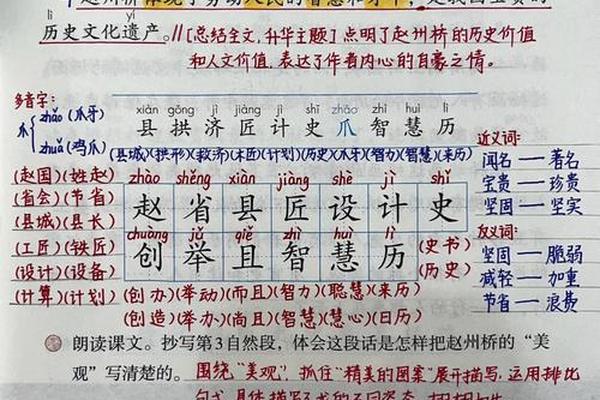 赵州桥体现了劳动人民的智慧和才干,是我国宝贵的
历史文化遗产。//[总结全文,升华主题]点明了赵州桥的历史价值
和人文价值,表达了作者内心的自豪之情。
多音字:
爪{zhǎo(爪牙)
zhuǎ(鸡爪)
xiàn gǒng jì jiàng jì shǐ zhǎo zhì huì lì
县 拱 济 匠 计 史 爪 智 慧 历
(县城)(拱形)(救济)(木匠)(计划)(历史)(爪牙)(智力)(智慧)(来历)
近义词:
闻名——著名
宝贵——珍贵
坚固——坚实
反义词:
坚固——脆弱
减轻——加重
节省——浪费
(赵国)(姓赵)
(省会)(节省)
(县城)(县长)
(工匠)(铁匠)
(设计)(设备)
(计算)(计划)
zhào shěng xiàn jiàng shè jì shǐ
赵 省 县 匠 设 计 史
chuàng jǔ qiě zhì huì lì
创 举 且 智 慧 历
(史书)
(历史)
(创办)(举动)(而且)(智力)(聪慧)(来历)
(创造)(举办)(尚且)(智慧)(慧心)(日历)
朗读课文。抄写第3自然段,体会这段话是怎样把赵州桥的“美
观”写清楚的。 围绕“美观”,抓住“精美的图案”展开描写,运用排比